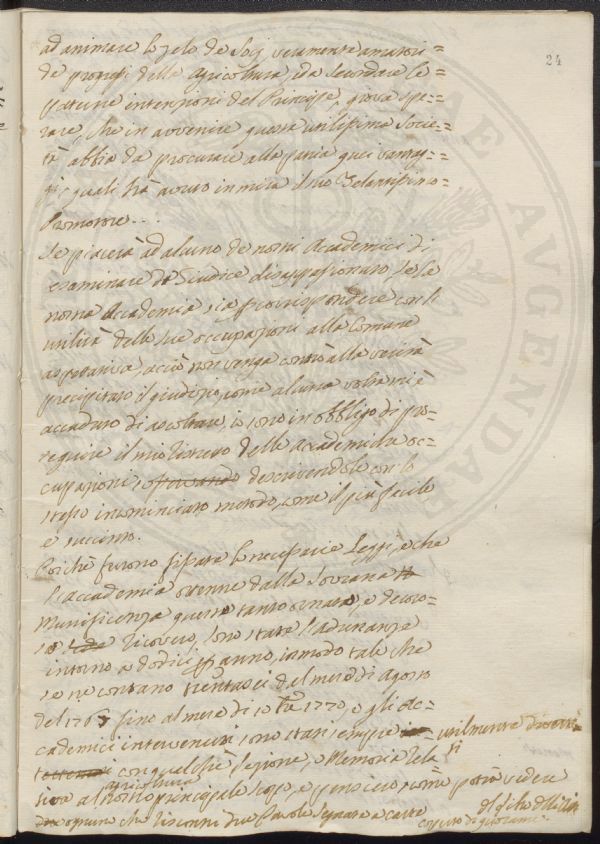 24
ad animare lo zelo de Socj veramente amatori=
de progressi della agricoltura, e da secondare le
paterne intenzioni del Principe, giova spe=
rare, che in avvenire questa utilissima Socie=
tà abbia da procurare alla patria quei vantag=
gj, quali hà avuto in mira il suo Zelantissimo
Promotore...
Se piacerà ad alcuno de nostri Accademici di
esaminare da Giudice disappassionato, se la
nostra Accademia sia corrispondere con l'
utilità delle sue occupazioni alla Comune
aspettativa, acciò non venga contro alla verità
precipitato il giudizio, come alcuna volta mi è
accaduto di ascoltare, io sono in obbligo di pro=
seguire il della Accademiche oc=
cupazioni, descrivendole con lo
stesso incominciato metodo, come il più facile
e succinto.
Poichè furono fissate le necessarie Leggi, e che
l'Accademia ottenne dalla Sovrana
Munificenza questo tanto ornato, e decoro=
so ricovero, sono state l'adunanze
intorno a dodici anno, in modo tale che
se ne contano trentasei dal mese di Agosto
del 1767 fino al mese di 1770, e gli Ac=
cademici intervenuti sono stati sempre utilmente
con qualche Lezione, o Memoria rela
tiva al nostro principale scopo, e pensiero, come potrà vedere
agricoltura
che riscontri due Tavole separate a carte